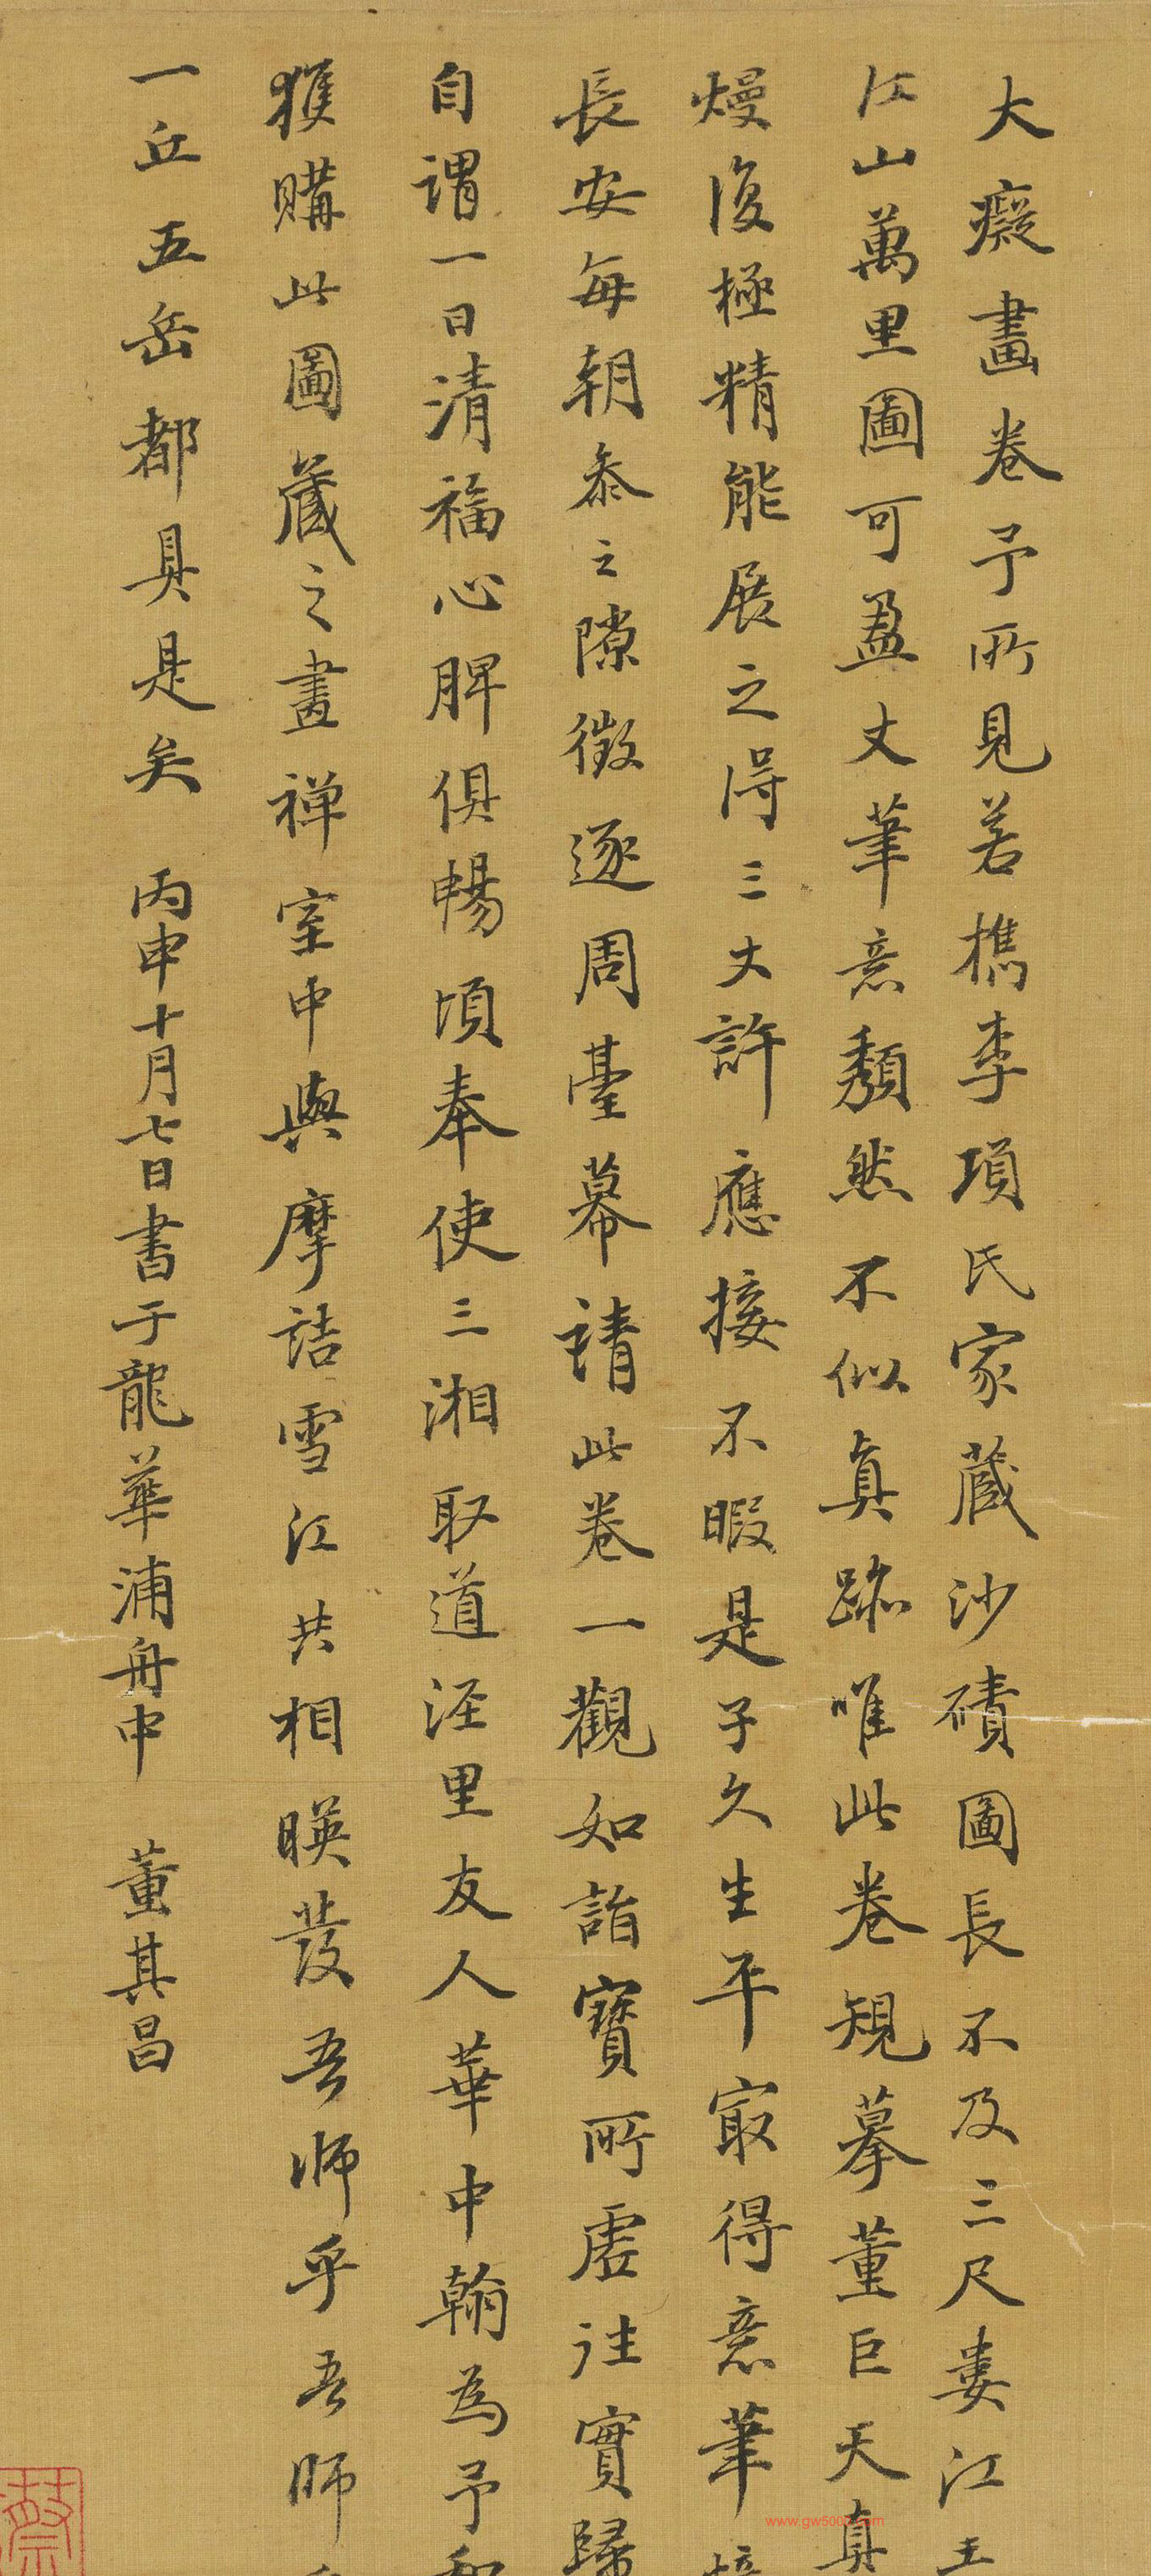 大癡畫卷予所見若檇李項氏家藏沙磧圖長不及三尺婁江王
江山萬里圖可盈丈筆意頹然不似真跡唯此卷規摹董巨天真
爛復極精能展之得三丈許應接不暇是子久生平冣得意筆
長安每朝叅之隙徵逐周臺幕請此卷一觀如詣寶所虛往實歸
自謂一日清福心脾俱暢頃奉使三湘取道涇里友人華中翰為予
獲購此圖藏之畫禪室中與摩詰雪江共相暎發吾師乎吾師
一丘五岳都具是矣 丙申十月七日書于龍華浦舟中 董其昌
www.gw500.com